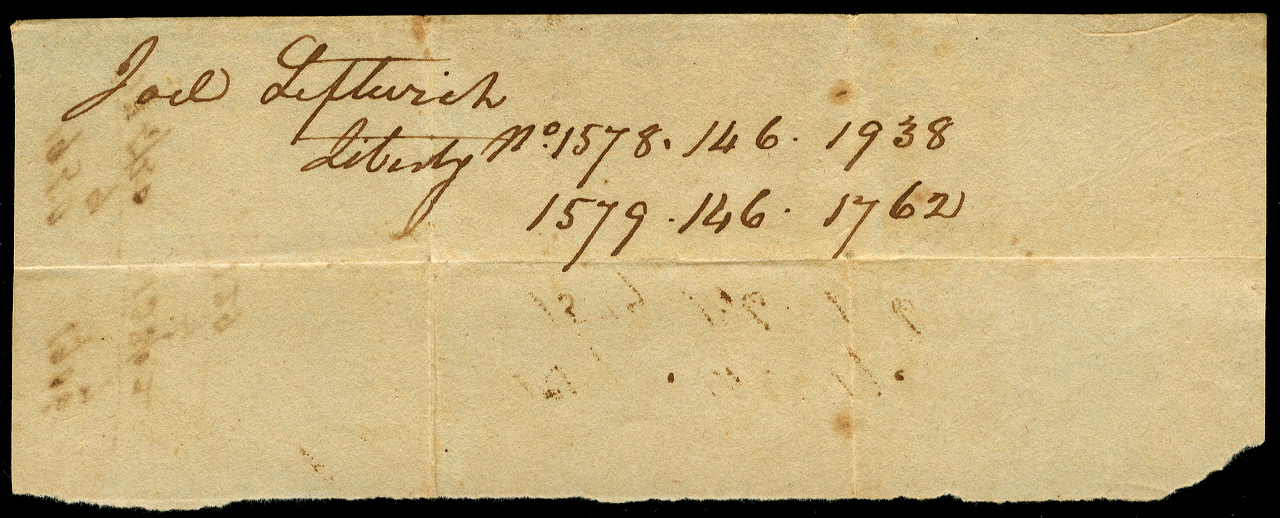 Joel Leftwich
Liberty No. 1578. 146. 1938
1579. 146. 1762